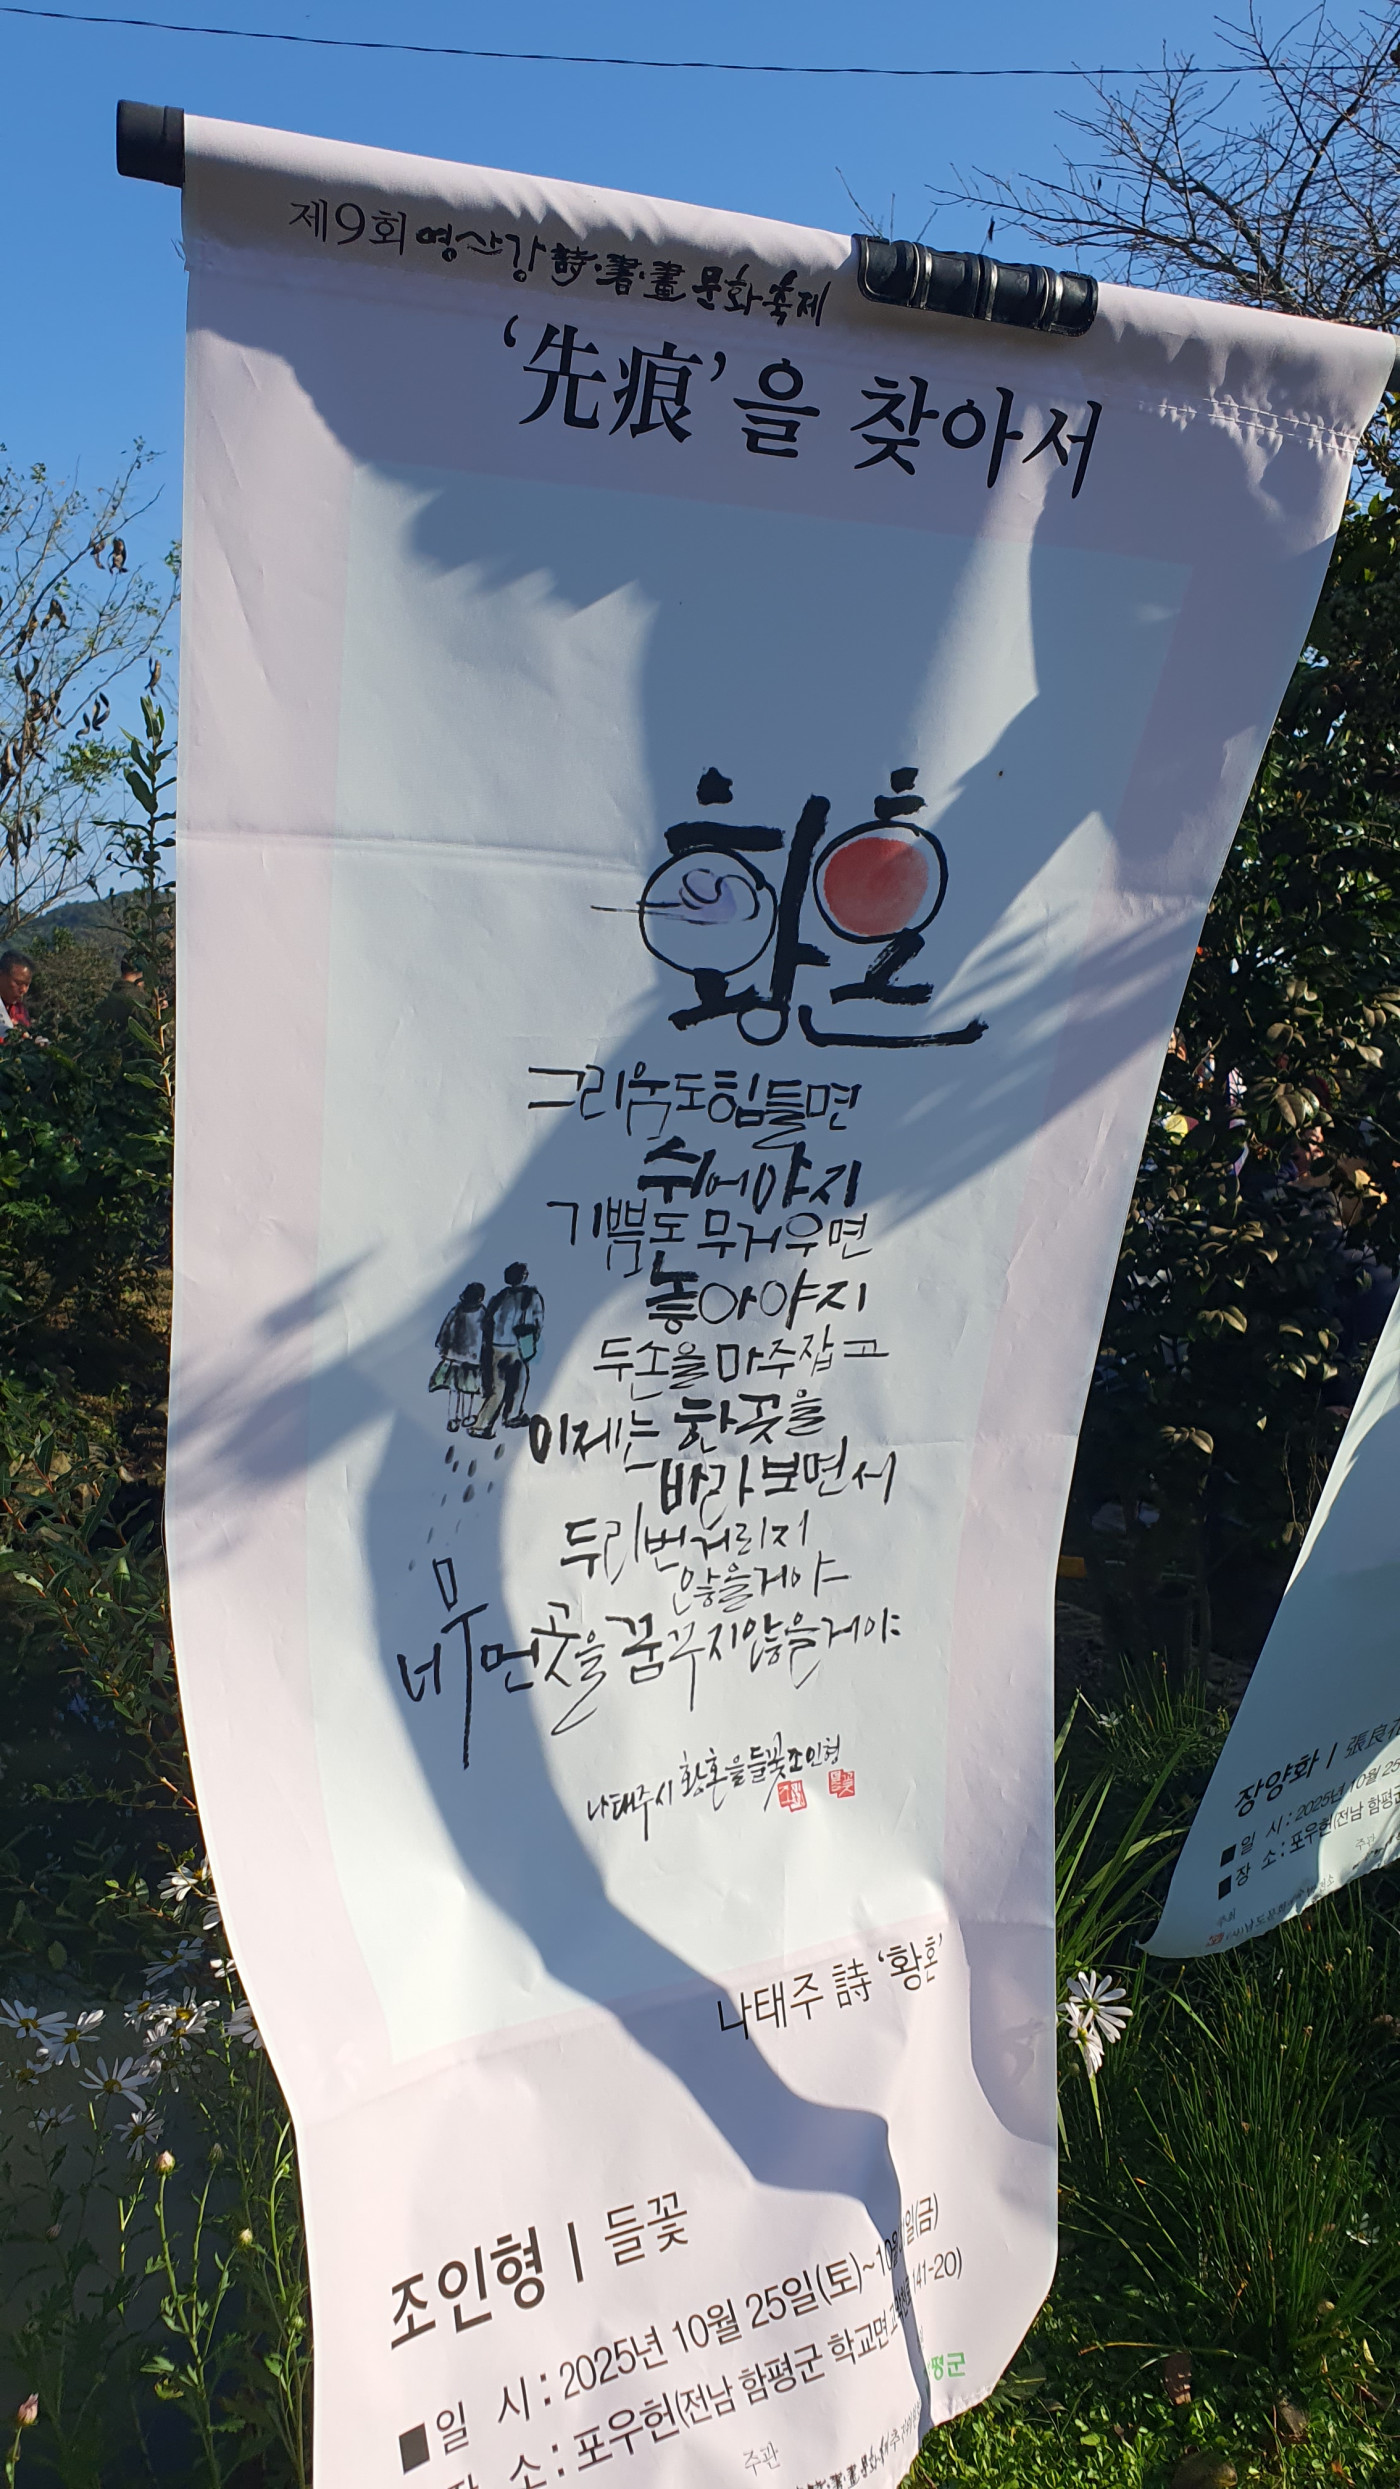 제9회 영산강 詩·書·畫 문화축제
‘先痕’을 찾아서
황혼
그리움도 힘들면
쉬어야지
기쁨도 무거우면
놓아야지
두손을 마주잡고
이제는 한곳을
바라보면서
두리번거리지
않을거야
너무 먼곳을 꿈꾸지 않을거야
나태주시 황혼을 들꽃 조인형
나태주 詩 ‘황혼’
조인형 | 들꽃
■일 시 : 2025년 10월 25일(토)~10월 31일(금)
장 소 : 포우헌(전남 함평군 학교면 141-20)
주관
평군
장양화 | 張良
■일 시 : 2025년 10월 25
■장 소 : 포우헌(전남 함평군
주관
주최